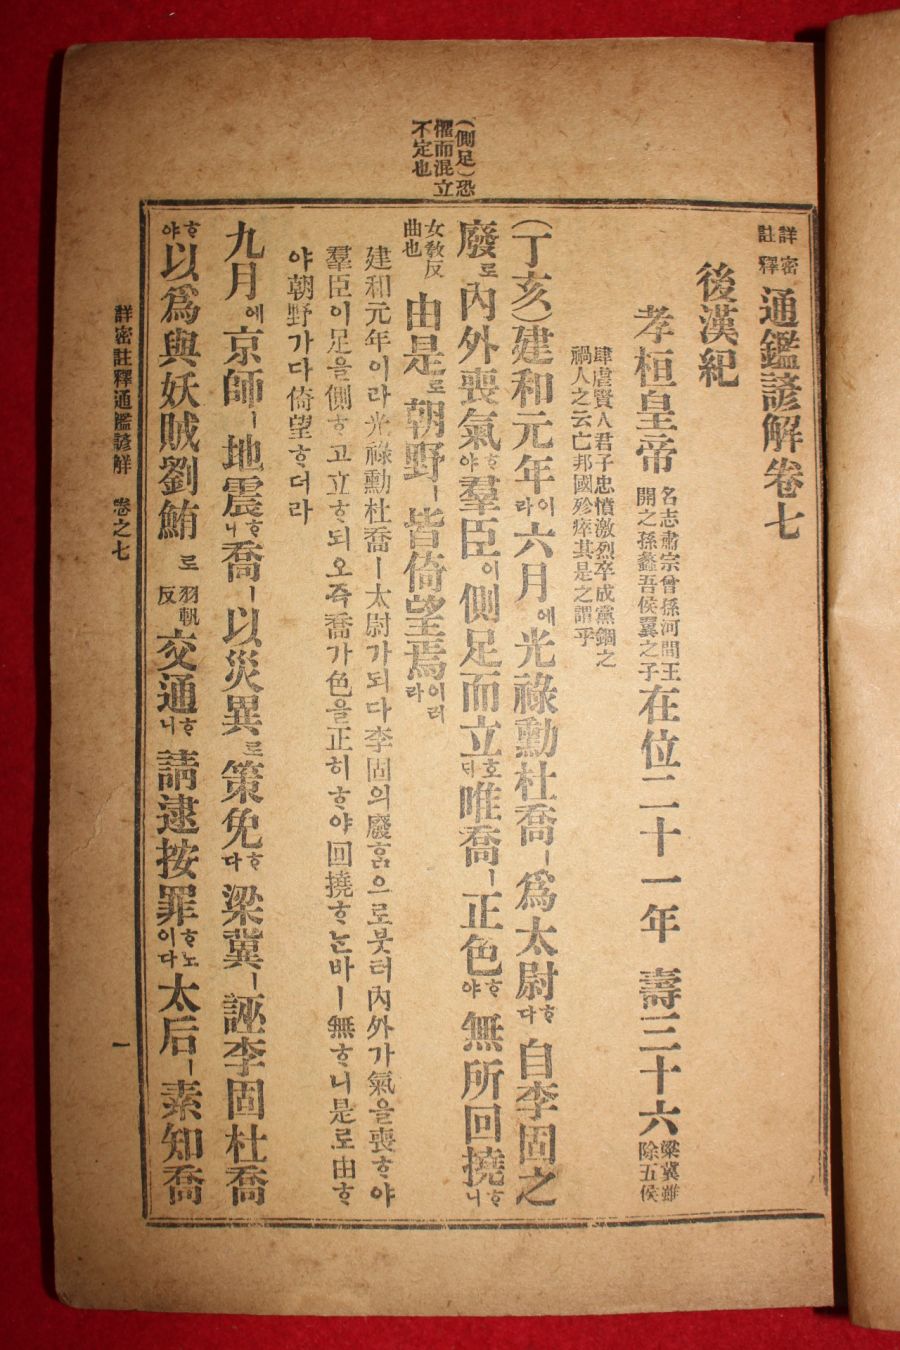 (側足)恐
懼而混立
不定也
詳密註釋 通鑑諺解卷七
後漢紀
孝桓皇帝 名志肅宗曾孫河間王開之孫蠡吾侯翼之子 在位二十一年 壽三十六 梁冀雖除五侯
肆虐賢人君子忠憤激烈卒成黨錮之
禍人之云亡邦國殄瘁其是之謂乎
(丁亥)建和元年이라六月에光祿勳杜喬ㅣ爲太尉ᄒᆞ다自李固之
廢로內外喪氣ᄒᆞ야羣臣이側足而立호ᄃᆡ唯喬ㅣ正色ᄒᆞ야無所回撓ᄒᆞ니
女敎反曲也 由是로朝野ㅣ皆倚望焉이러라
建和元年이라光祿勳杜喬ㅣ太尉가되다李固의廢ᄒᆞᆷ으로븟터內外가氣을喪ᄒᆞ야
羣臣이足을側ᄒᆞ고立ᄒᆞ되오즉喬가色을正히ᄒᆞ야回撓ᄒᆞᄂᆞᆫ바ㅣ無ᄒᆞ니是로由ᄒᆞ
야朝野가다倚望ᄒᆞ더라
九月에京師ㅣ地震ᄒᆞ니喬ㅣ以災異로策免ᄒᆞ다梁冀ㅣ誣李固杜喬
ᄒᆞ야以爲與妖賊劉鮪로 羽軌反 交通ᄒᆞ니請逮按罪ᄒᆞ노이다太后ㅣ素知喬
詳密註釋通鑑諺解 卷之七 一